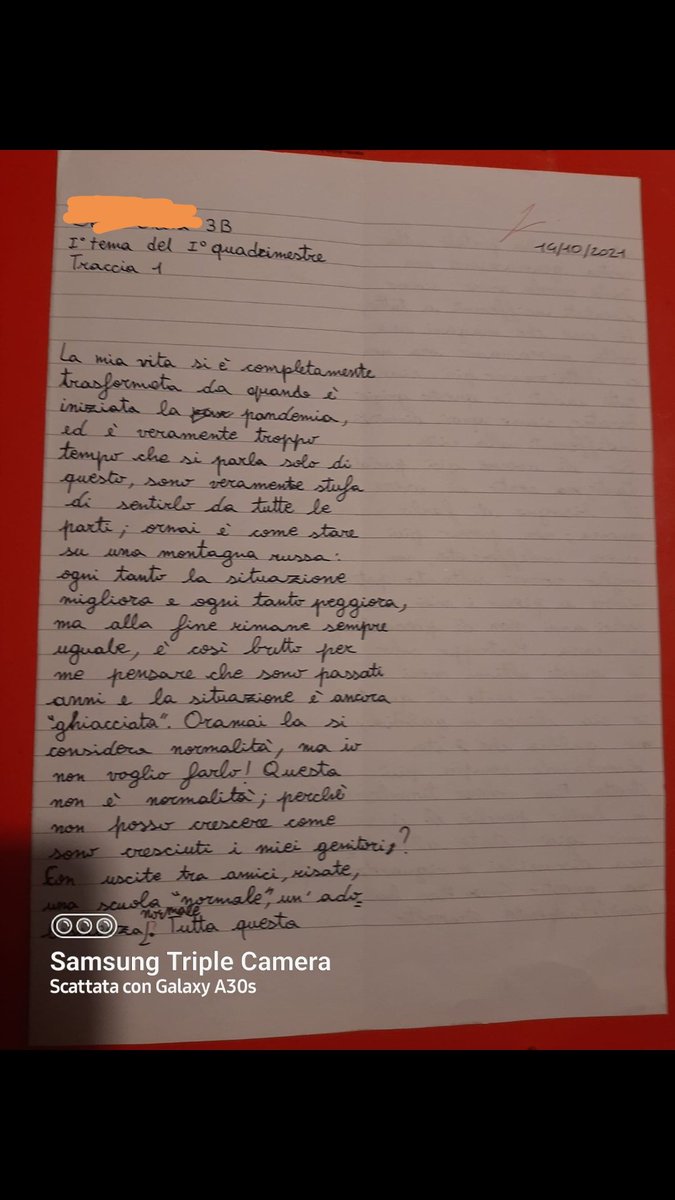 3B
I° tema del I° quadrimestre
Traccia 1
14/10/2021
La mia vita si è completamente
trasformata da quando è
iniziata la pandemia,
ed è veramente troppo
tempo che si parla solo di
questo, sono veramente stufa
di sentirlo da tutte le
parti; ormai è come stare
su una montagna russa:
ogni tanto la situazione
migliora e ogni tanto peggiora,
ma alla fine rimane sempre
uguale, è così brutto per
me pensare che sono passati
anni e la situazione è ancora
"ghiacciata". Oramai la si
considera normalità, ma io
non voglio farlo! Questa
non è normalità; perché
non posso crescere come
sono cresciuti i miei genitori,?
Con uscite tra amici, risate,
una scuola "normale", un'ado
normale
. Tutta questa
Samsung Triple Camera
Scattata con Galaxy A30s